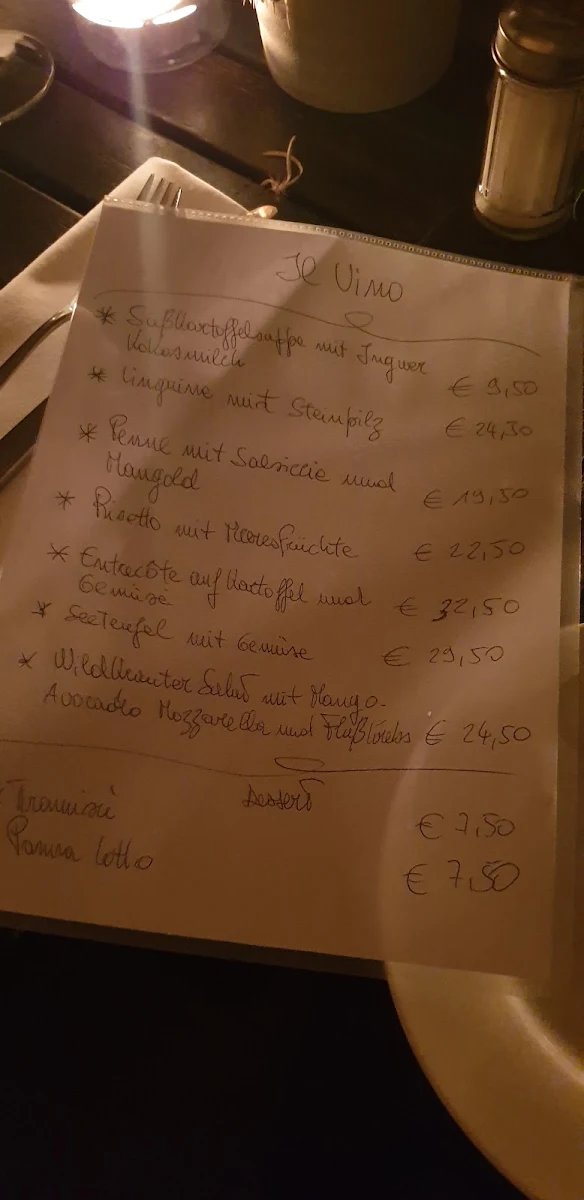 Il Vino
* Süßkartoffelsuppe mit Ingwer
Kokosmilch € 9,50
* Linguine mit Steinpilz € 24,50
* Penne mit Salsiccie und
Mangold € 19,50
* Risotto mit Meeresfrüchte € 22,50
* Entrecôte auf Kartoffel und
Gemüse € 32,50
* Seeteufel mit Gemüse € 29,50
* Wildkräuter Salat mit Mango-
Avocado Mozzarella und Flußkrebs € 24,50
Dessert
Tiramisú € 7,50
Panna Cotta € 7,50